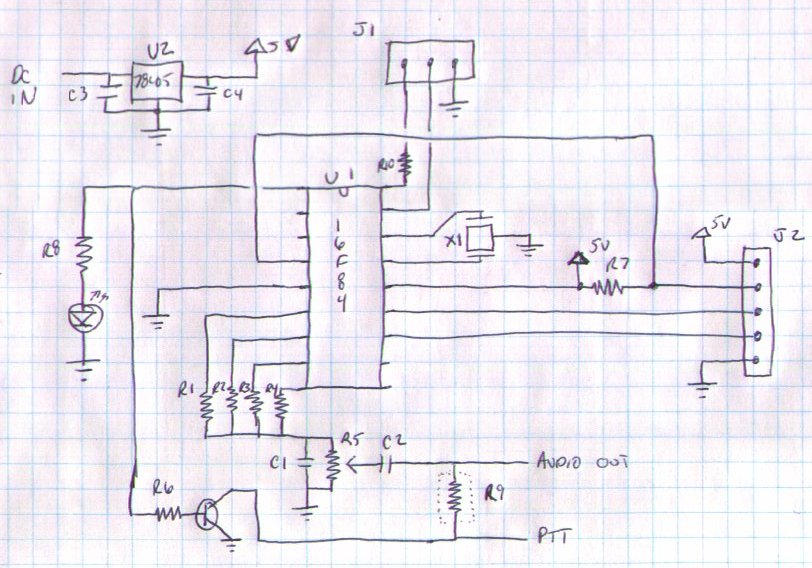 J1
U2
5V
DC
IN
78L05
C3
C4
R10
U1
16F84
R8
X1
5V
R7
5V
J2
R1
R2
R3
R4
R5
C2
C1
AUDIO OUT
R9
R6
PTT